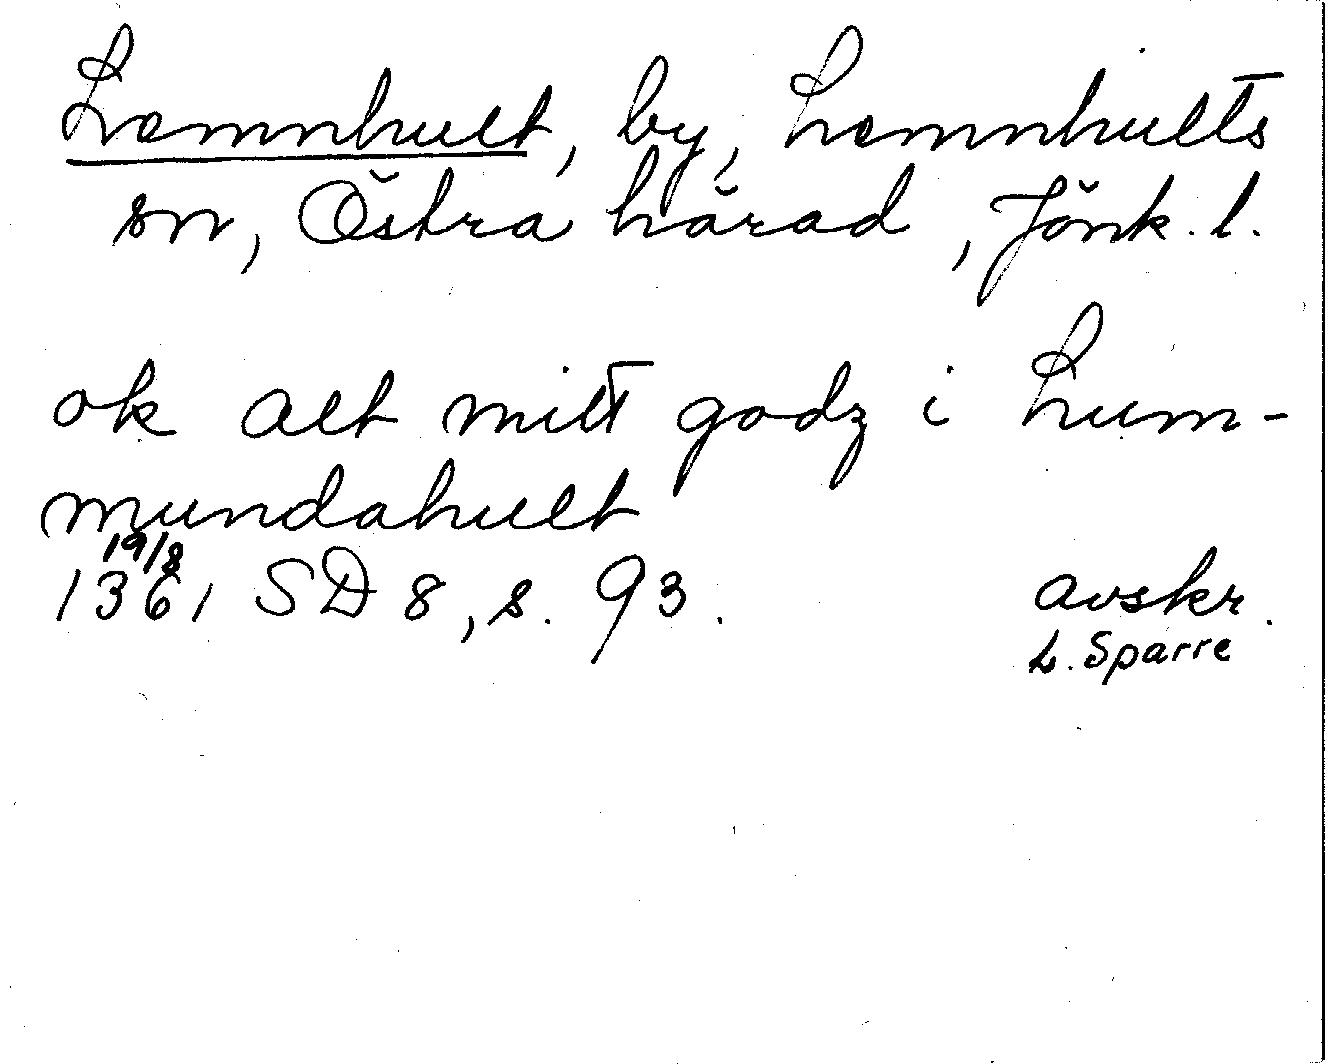 Lemnhult, by, Lemnhults
sn, Östra härad, Jönk. l.
ok alt mitt godz i Lum-
mundahult
19/8
1361 SD 8, s. 93.
avskr.
L. Sparre